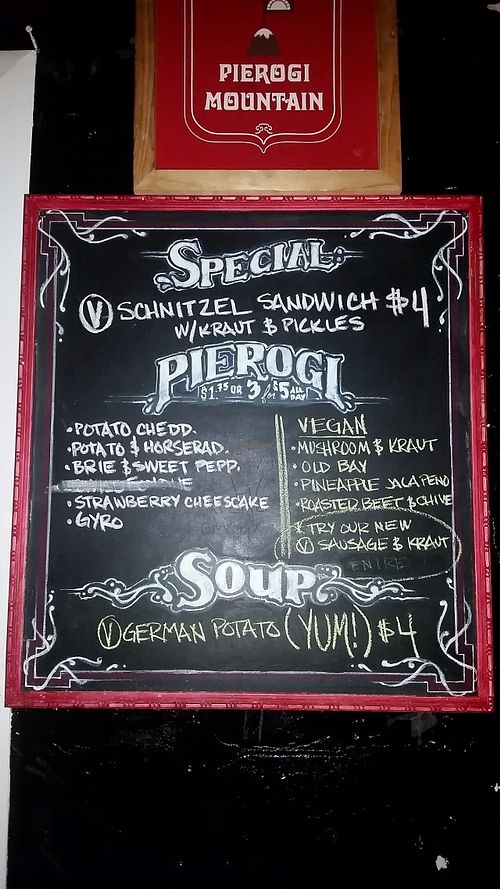 PIEROGI
MOUNTAIN
SPECIAL:
V SCHNITZEL SANDWICH $4
W/KRAUT & PICKLES
PIEROGI
$1.75 OR 3 for $5 ALL DAY
• POTATO CHEDD.
• POTATO & HORSERAD.
• BRIE & SWEET PEPP.
• STRAWBERRY CHEESCAKE
• GYRO
VEGAN
• MUSHROOM & KRAUT
• OLD BAY
• PINEAPPLE JALAPENO
• ROASTED BEET & CHIVE
* TRY OUR NEW
V SAUSAGE & KRAUT
SOUP
V GERMAN POTATO (YUM!) $4